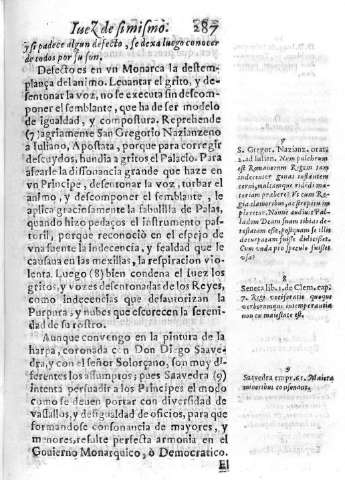 Iuez de si mismo. 287
y si padece algun defecto, se dexa luego conocer
de todos por su son.
Defecto es en vn Monarca la destem-
plança del animo. Leuantar el grito, y de-
sentonar la voz, no se executa sin descom-
poner el semblante, que ha de ser modelo
de igualdad, y compostura. Reprehende
(7) agriamente San Gregorio Nazianzeno
a Iuliano, Apostata, porque para corregir
descuydos, hundia a gritos el Palacio. Para
afearle la dissonancia grande que haze en
vn Principe, desentonar la voz, turbar el
animo, y descomponer el semblante, le
aplica graciosamente la fabulilla de Palas,
quando hizo pedaços el instrumento pas-
toril, porque reconoció en el espejo de
vna fuente la indecencia, y fealdad que le
causaua en las mexillas, la respiracion vio-
lenta. Luego (8) bien condena el Iuez los
gritos, y vozes desentonadas de los Reyes,
como indecencias que desautorizan la
Purpura, y nubes que escurecen la sereni-
dad de su rostro.
Aunque convengo en la pintura de la
harpa, coronada con Don Diego Saave-
dra, y con el señor Solorçano, son muy di-
ferentes los assumptos; pues Saavedra (9)
intenta persuadir a los Principes el modo
como se deuen portar con diversidad de
vassallos, y desigualdad de oficios, para que
formandose consonancia de mayores, y
menores, resulte perfecta armonia en el
Gouierno Monarquico, ò Democratico.
El
7
S. Gregor. Nazianz. orat.
2. ad Iulian. Nam pulchrum
est Romanorum Regem tam
indecenter genas ostentare
8
Seneca lib. 1. de Clem. cap.
7. Regi vociferatio quoque
verborumque intemperantia
non ex maiestate est.
9
Saavedra empr. 61. Maiora
minoribus consonant.